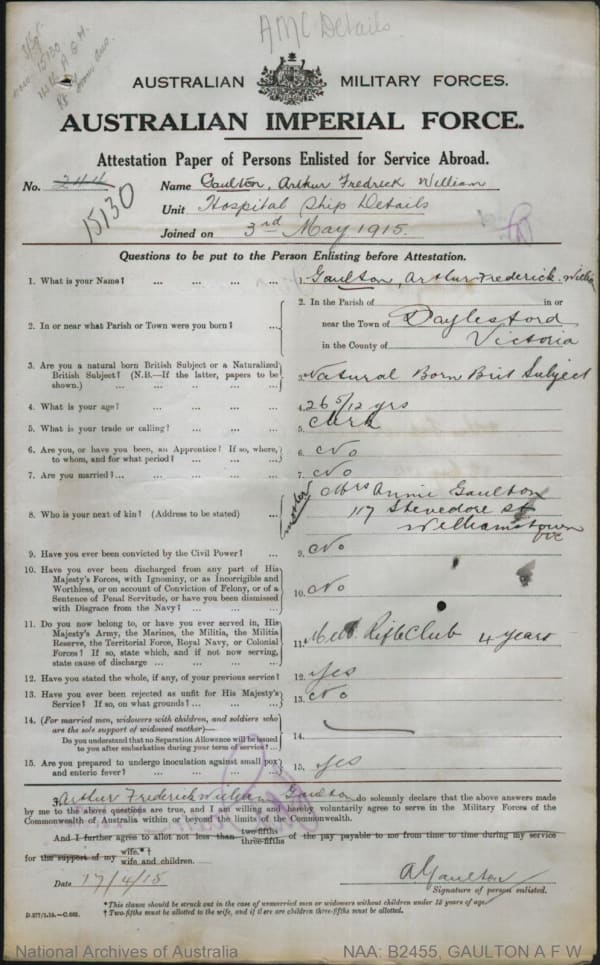 AMC Details
15130
AUSTRALIAN MILITARY FORCES.
AUSTRALIAN IMPERIAL FORCE.
Attestation Paper of Persons Enlisted for Service Abroad.
No. 244 Name Gaulton, Arthur Fredrick William
15130
Unit Hospital Ship Details
Joined on 3rd May 1915
Questions to be put to the Person Enlisting before Attestation.
1. What is your Name? ... ... ... ... 1. Gaulton, Arthur Frederick William
2. In or near what Parish or Town were you born? ... 2. In the Parish of in or
near the Town of Daylesford
in the County of Victoria
3. Are you a natural born British Subject or a Naturalized
British Subject? (N.B.—If the latter, papers to be
shown.) ... ... ... ... 3. Natural Born Brit Subject
4. What is your age? ... ... ... ... 4. 26 5/12 yrs
5. What is your trade or calling? ... ... ... 5. Clerk
6. Are you, or have you been, an Apprentice? If so, where,
to whom, and for what period? ... ... ... 6. No
7. Are you married? ... ... ... ... 7. No
8. Who is your next of kin? (Address to be stated) ... 8. mother Mrs Annie Gaulton
117 Stevedore St
Williamstown
Vic
9. Have you ever been convicted by the Civil Power? ... 9. No
10. Have you ever been discharged from any part of His
Majesty's Forces, with Ignominy, or as Incorrigible and
Worthless, or on account of Conviction of Felony, or of a
Sentence of Penal Servitude, or have you been dismissed
with Disgrace from the Navy? ... ... ... 10. No
11. Do you now belong to, or have you ever served in, His
Majesty's Army, the Marines, the Militia, the Militia
Reserve, the Territorial Force, Royal Navy, or Colonial
Forces? If so, state which, and if not now serving,
state cause of discharge ... ... ... 11. Melb. Rifle Club 4 years
12. Have you stated the whole, if any, of your previous service? 12. Yes
13. Have you ever been rejected as unfit for His Majesty's
Service? If so, on what grounds? ... ... 13. No
14. (For married men, widowers with children, and soldiers who
are the sole support of widowed mother)—
Do you understand that no Separation Allowance will be issued
to you after embarkation during your term of service? ... 14.
15. Are you prepared to undergo inoculation against small pox
and enteric fever? ... ... ... ... 15. Yes
I, Arthur Frederick William Gaulton do solemnly declare that the above answers made
by me to the above questions are true, and I am willing and hereby voluntarily agree to serve in the Military Forces of the
Commonwealth of Australia within or beyond the limits of the Commonwealth.
And I further agree to allot not less than two-fifths three-fifths of the pay payable to me from time to time during my service
for the support of my wife.*† wife and children.
Date 17/4/15 A Gaulton
Signature of person enlisted.
*This clause should be struck out in the case of unmarried men or widowers without children under 18 years of age.
† Two-fifths must be allotted to the wife, and if there are children three-fifths must be allotted.
National Archives of Australia NAA: B2455, GAULTON A F W